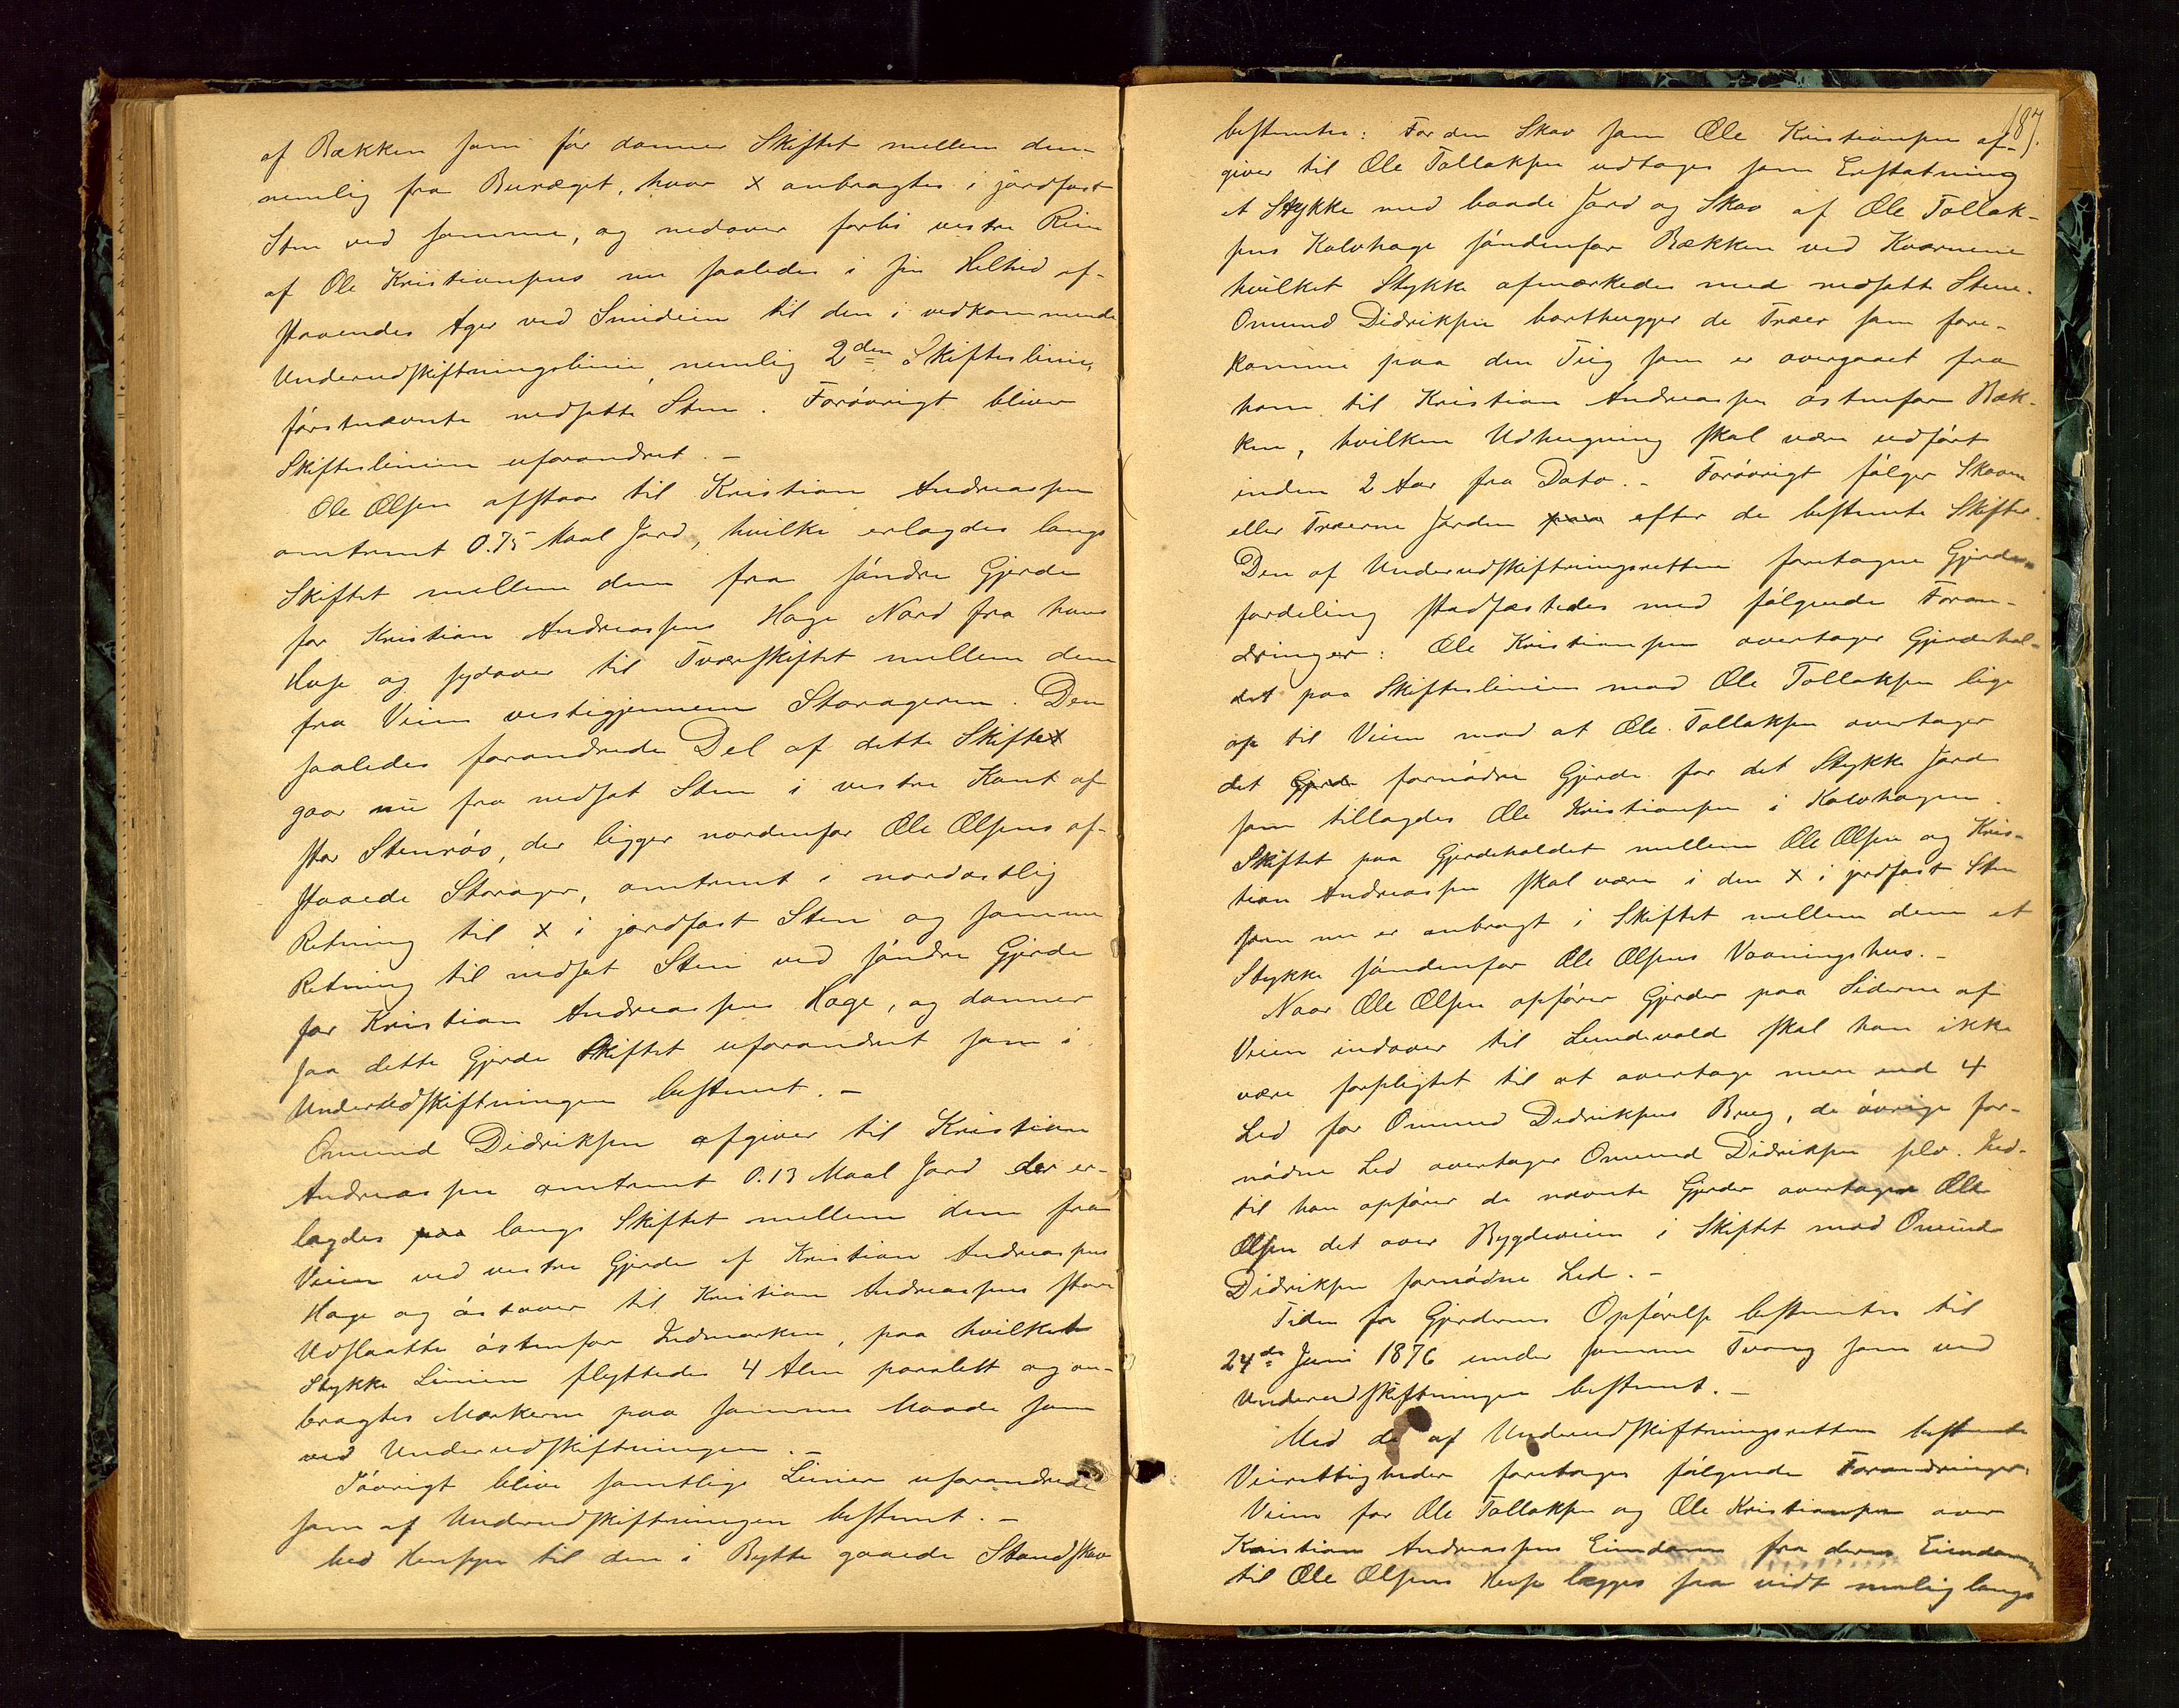 af Bækken som før danner Skiftet mellem dem
nemlig fra Buræget, hvor x anbragtes i jordfast
Sten ved samme, og nedover forbi vestre Rein
af Ole Kristiansens nu saaledes i sin Helhed af-
staaendes Ager ved Smideien til den i vedkommende
Underudskiftningslinie, nemlig 2den Skifteslinie,
førstnævnte nedsatte Sten. Forøvrigt bliver
Skifteslinien uforandret. –
Ole Olsen afstaar til Kristian Andreassen
omtrent 0.75 Maal Jord, hvilke erlagdes langs
Skiftet mellem dem fra søndre Gjerde
for Kristian Andreassens Hage Nord fra hans
Huse og sydover til Tværskiftet mellem dem
fra Veien vestigjennem Storageren. Den
saaledes forandrede Del af dette Skifte
gaar nu fra nedsat Sten i vestre Kant af
stor Stenrøs, der ligger nordenfor Ole Olsens af-
staaede Storager, omtrent i nordostlig
Retning til x i jordfast Sten og samme
Retning til nedsat Sten ved søndre Gjerde
for Kristian Andreassens Hage, og danner
saa dette Gjerde Skiftet uforandret som i
Underudskiftningen bestemt. –
Omund Didriksen afgiver til Kristian
Andreassen omtrent 0.13 Maal Jord der er-
lagdes paa langs Skiftet mellem dem fra
Veien ved vestre Gjerde af Kristian Andreassens
Hage og østover til Kristian Andreassens store
Udslaatte østenfor Indmarken, paa hvilket
Stykke Linien flyttedes 4 Alen paralelt og an-
bragtes Mærkerne paa samme Maade som
ved Underudskiftningen. –
Iøvrigt blive samtlige Linier uforandrede
som af Underudskiftningen bestemt. –
Med Hensyn til den i Bytte gaaede Standskov
187.
bestemtes: For den Skov som Ole Kristiansen af-
giver til Ole Tollaksen udtages som Erstatning
et Stykke med baade Jord og Skov af Ole Tollak-
sens Kalvhage søndenfor Bækken ved Kværnene
hvilket Stykke afmærkedes med nedsatte Stene.
Omund Didriksen borthugger de Træer som fore-
komme paa den Teig som er overgaaet fra
ham til Kristian Andreassen østenfor Bæk-
ken, hvilken Udhugning skal være udført
inden 2 Aar fra Dato. – Forøvrigt følger Skoven
eller Træerne Jorden paa efter de bestemte Skifter.
Den af Underudskiftningsretten foretagne Gjerde-
fordeling stadfæstedes med følgende Foran-
dringer: Ole Kristiansen overtager Gjerdehol-
det paa Skifteslinien mod Ole Tollaksen lige
op til Veien mod at Ole Tollaksen overtager
det Gjerde fornødne Gjerde for det Stykke Jord
som tillagdes Ole Kristiansen i Kalvhagen.
Skiftet paa Gjerdeholdet mellem Ole Olsen og Kris-
tian Andreassen skal være i den x i jordfast Sten
som nu er anbragt i Skiftet mellem dem et
Stykke søndenfor Ole Olsens Vaaningshus. –
Naar Ole Olsen opfører Gjerder paa Siderne af
Veien indover til Lundevold skal han ikke
være forpligtet til at overtage mere end 4
Led for Omund Didriksens Brug, de øvrige for-
nødne Led overtager Omund Didriksen selv. Ind-
til han opfører de nævnte Gjerder overtager Ole
Olsen det over Bygdeveien i Skiftet mod Omund
Didriksen fornødne Led. –
Tiden for Gjerdernes Opførelse bestemtes til
24de Juni 1876 under samme Tvang som ved
Underudskiftningen bestemt. –
Med de af Underudskiftningsretten bestemte
Veirettigheder foretages følgende Forandringer:
Veien for Ole Tollaksen og Ole Kristiansen over
Kristian Andreassens Eiendom fra deres Eiendomme
til Ole Olsens Huse lægges saa vidt mulig langs